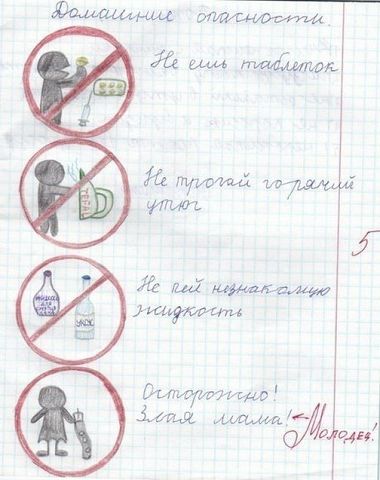 Домашние опасности.
Не ешь таблеток
Не трогай горячий
утюг
TEFAL
5
Не пей незнакомую
жидкость
УКСУС
Осторожно!
Злая мама!
Молодец!